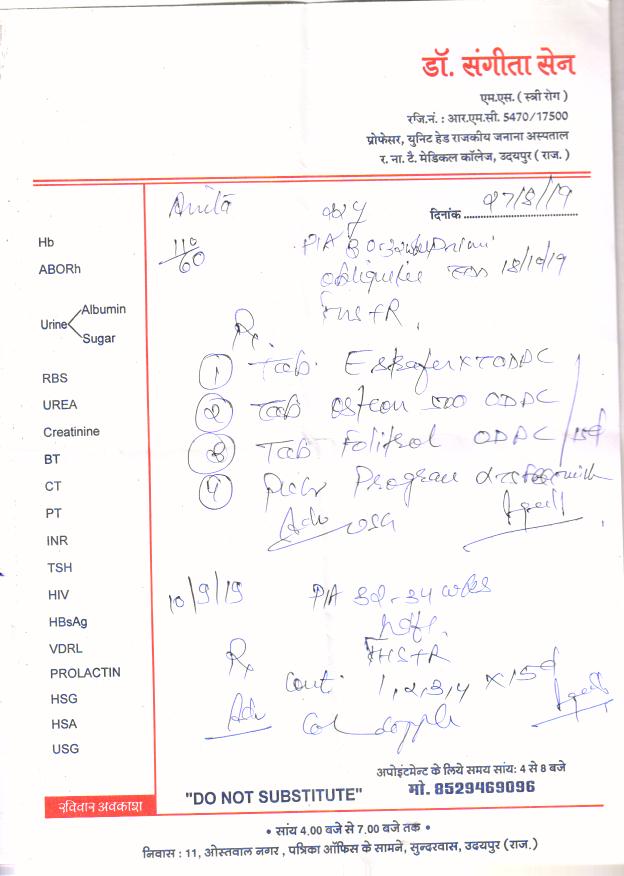 डॉ. संगीता सेन
एम.एस. ( स्त्री रोग )
रजि.नं. : आर.एम.सी. 5470/17500
प्रोफेसर, युनिट हेड राजकीय जनाना अस्पताल
र. ना. टै. मेडिकल कॉलेज, उदयपुर ( राज. )
Anita
दिनांक 27/8/19
110/60
P/A 30-32 wks
18/10/19
FHS+R
Rx
① Tab. XT ODPC
② Tab 500 ODPC
③ Tab ODPC / 15d
④
Adv USG
10/9/19 P/A 32-34 wks
Rx FHS+R
Cont. 1,2,3,4 x 15d
Adv Col
Hb
ABORh
Urine
Albumin
Sugar
RBS
UREA
Creatinine
BT
CT
PT
INR
TSH
HIV
HBsAg
VDRL
PROLACTIN
HSG
HSA
USG
रविवार अवकाश
"DO NOT SUBSTITUTE"
अपोइंटमेन्ट के लिये समय सांय: 4 से 8 बजे
मो. 8529469096
• सांय 4.00 बजे से 7.00 बजे तक •
निवास : 11, ओस्तवाल नगर , पत्रिका ऑफिस के सामने, सुन्दरवास, उदयपुर (राज.)